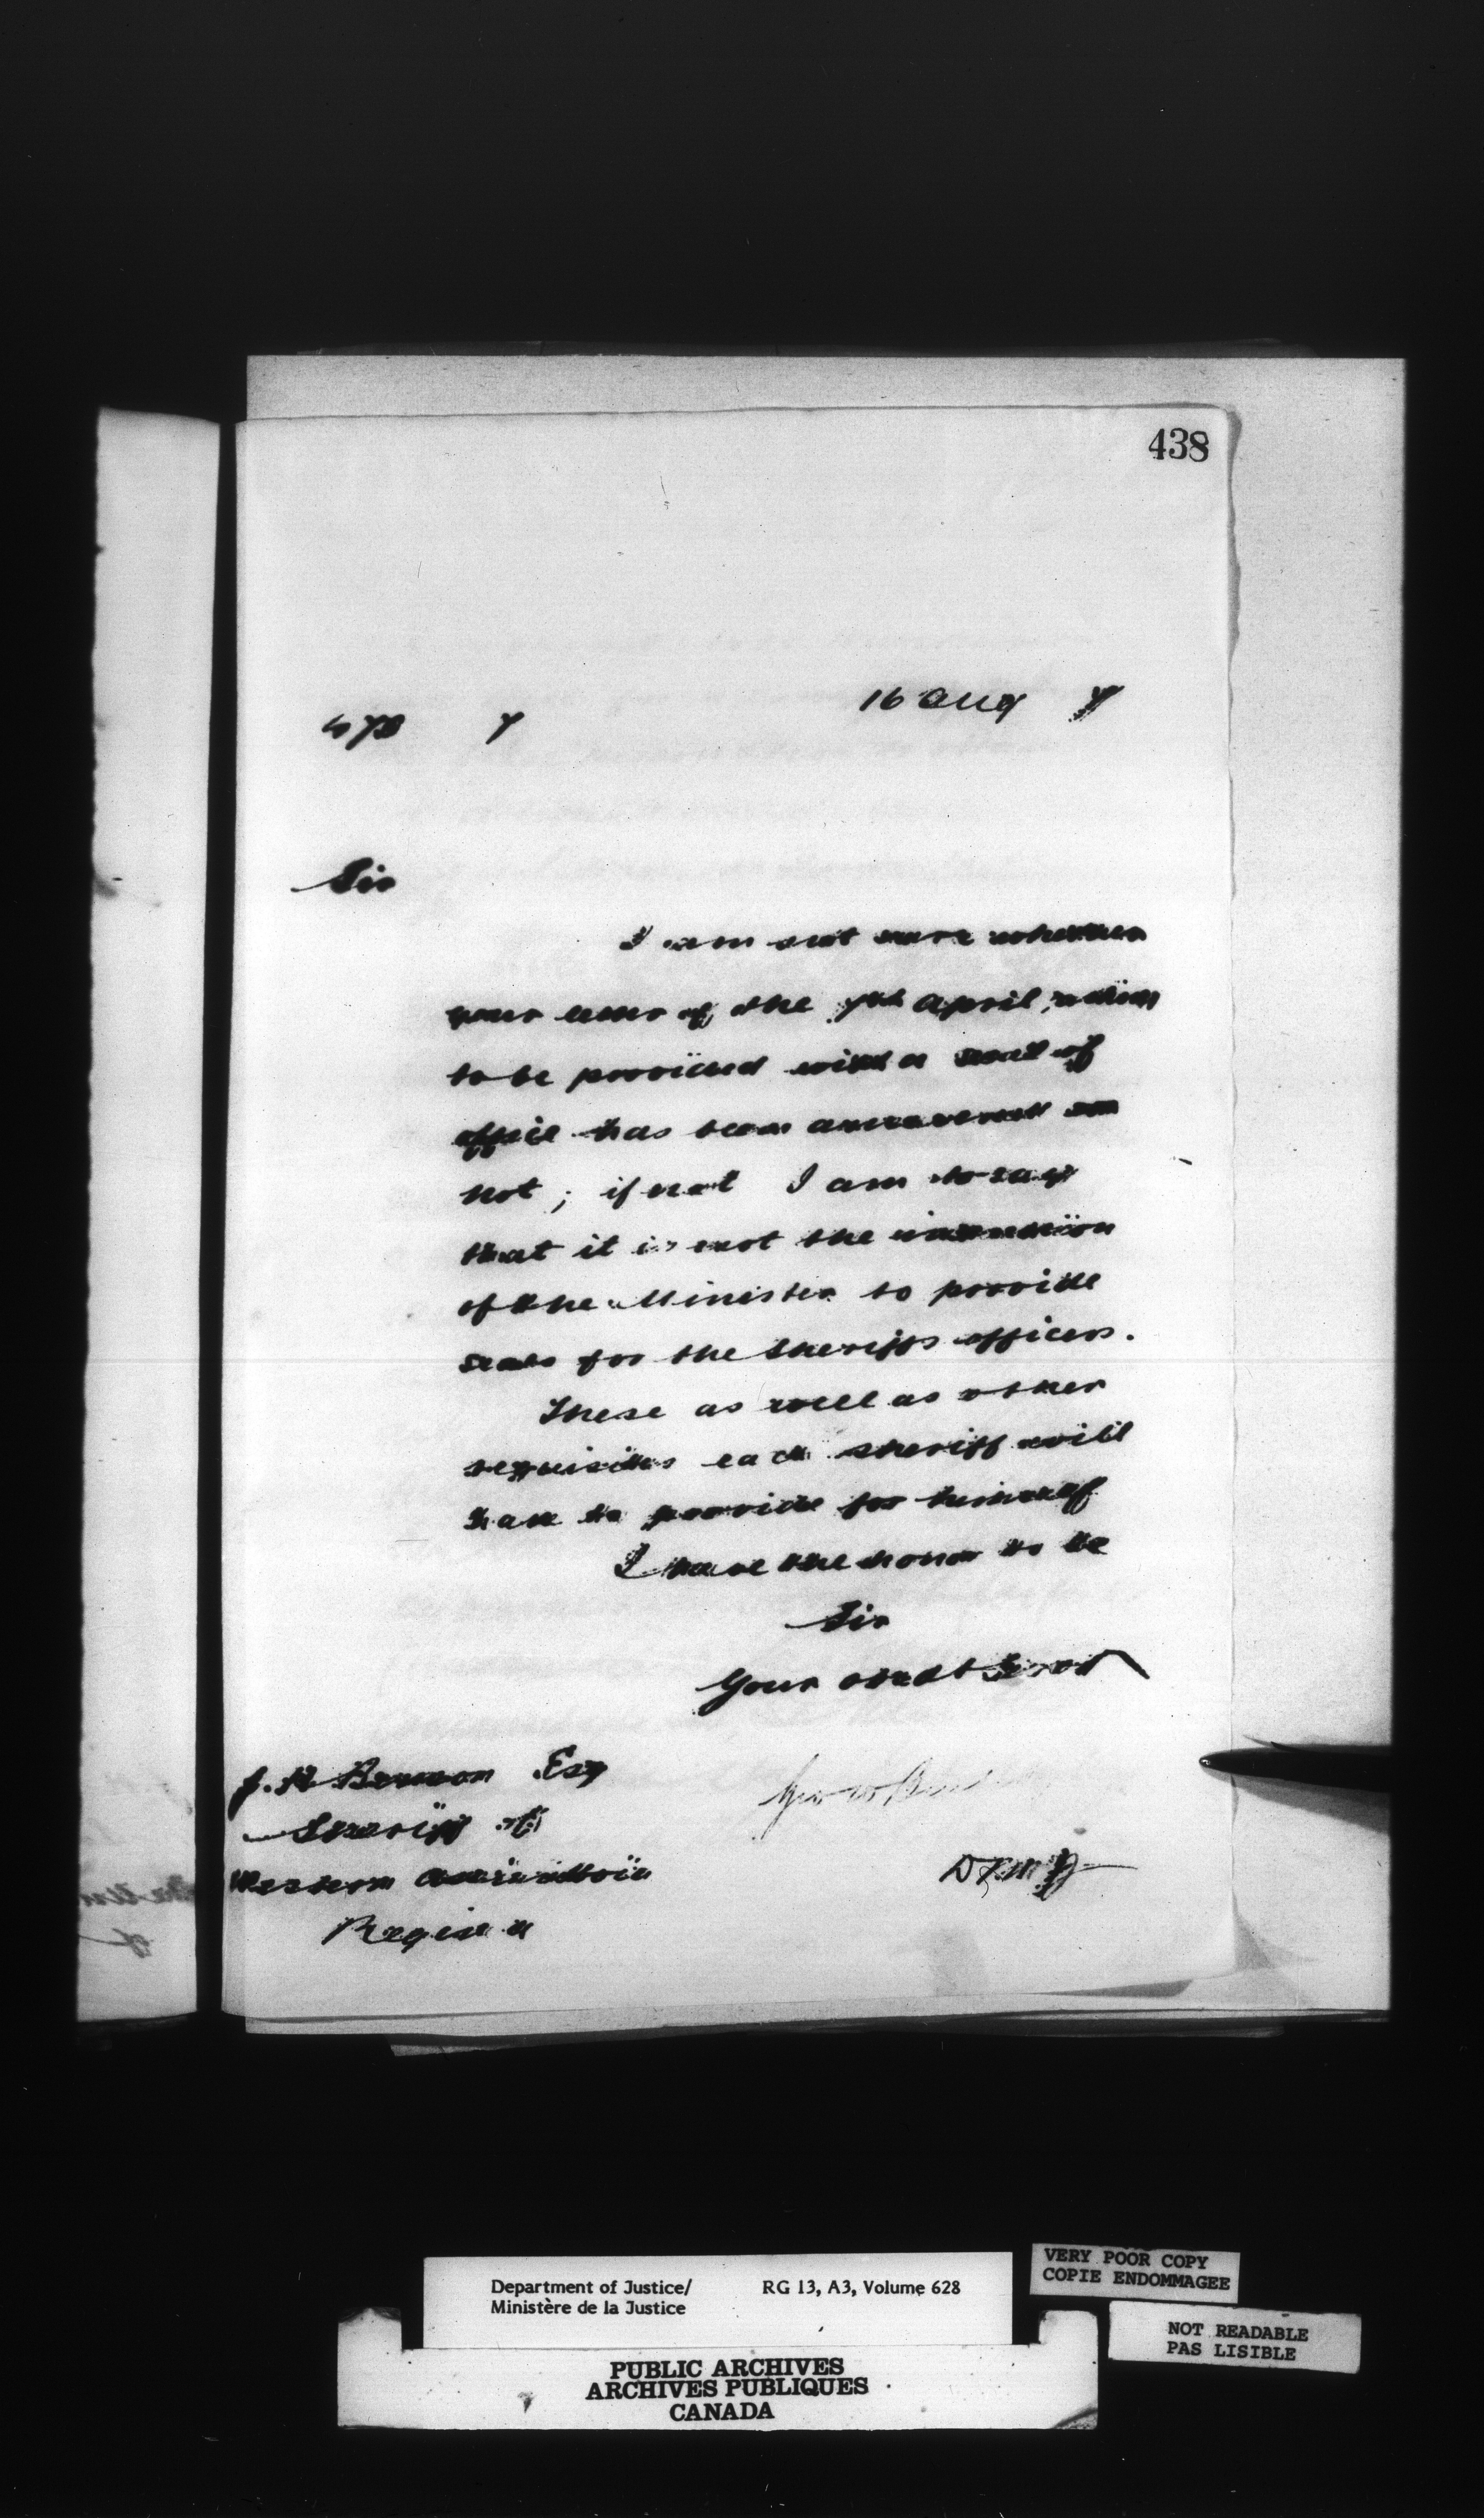 438
16 Aug 7
478 7
Sir
I am not sure whether
your letter of the 7th April,
to be provided with a seal of
office has been answered or
not; if not I am to say
that it is not the intention
of the Minister to provide
seals for the Sheriffs officers.
These as well as other
requisites each sheriff will
have to provide for himself
I have the honor to be
Sir
Your obedt Servt
J. H Benson Esq
Sheriff of
Western Assiniboia
Regina
Geo W Bur
D M J
Department of Justice/
Ministère de la Justice
RG 13, A3, Volume 628
VERY POOR COPY
COPIE ENDOMMAGEE
NOT READABLE
PAS LISIBLE
PUBLIC ARCHIVES
ARCHIVES PUBLIQUES
CANADA